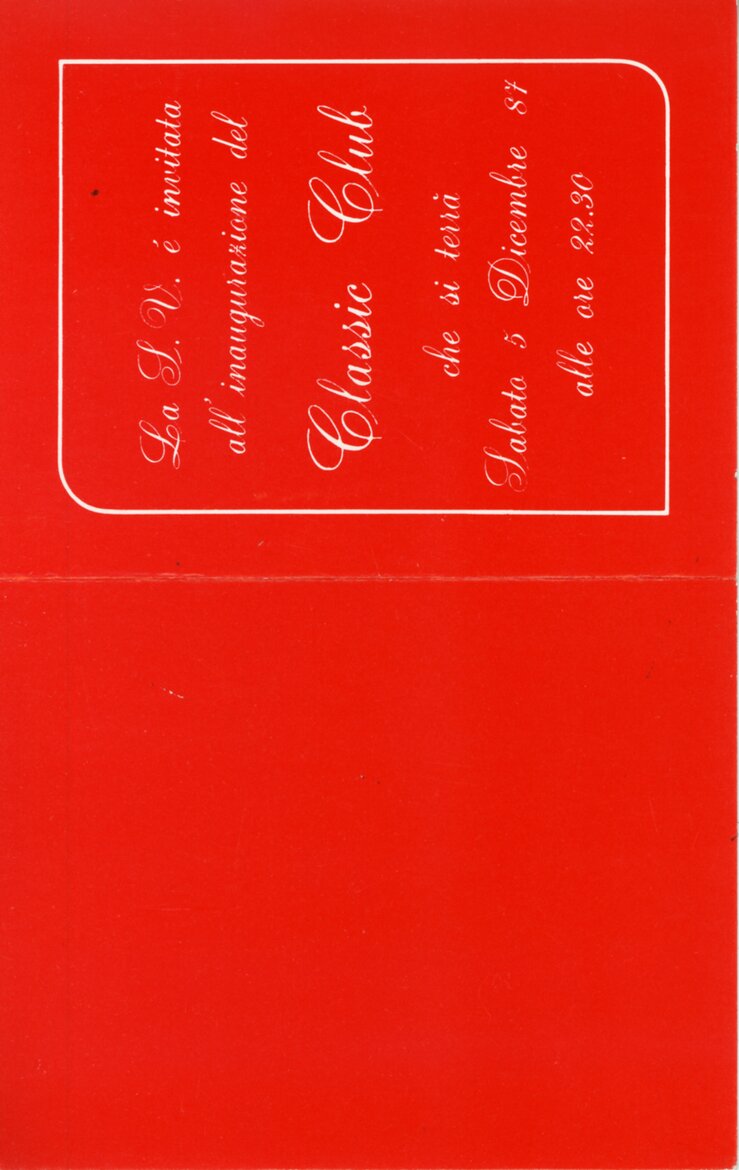 La S. V. é invitata
all'inaugurazione del
Classic Club
che si terrà
Sabato 5 Dicembre 87
alle ore 22.30